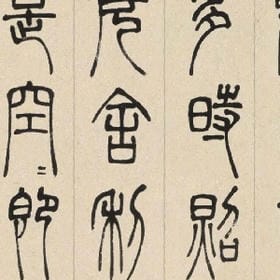 多時照
厄舍利
是空〻即